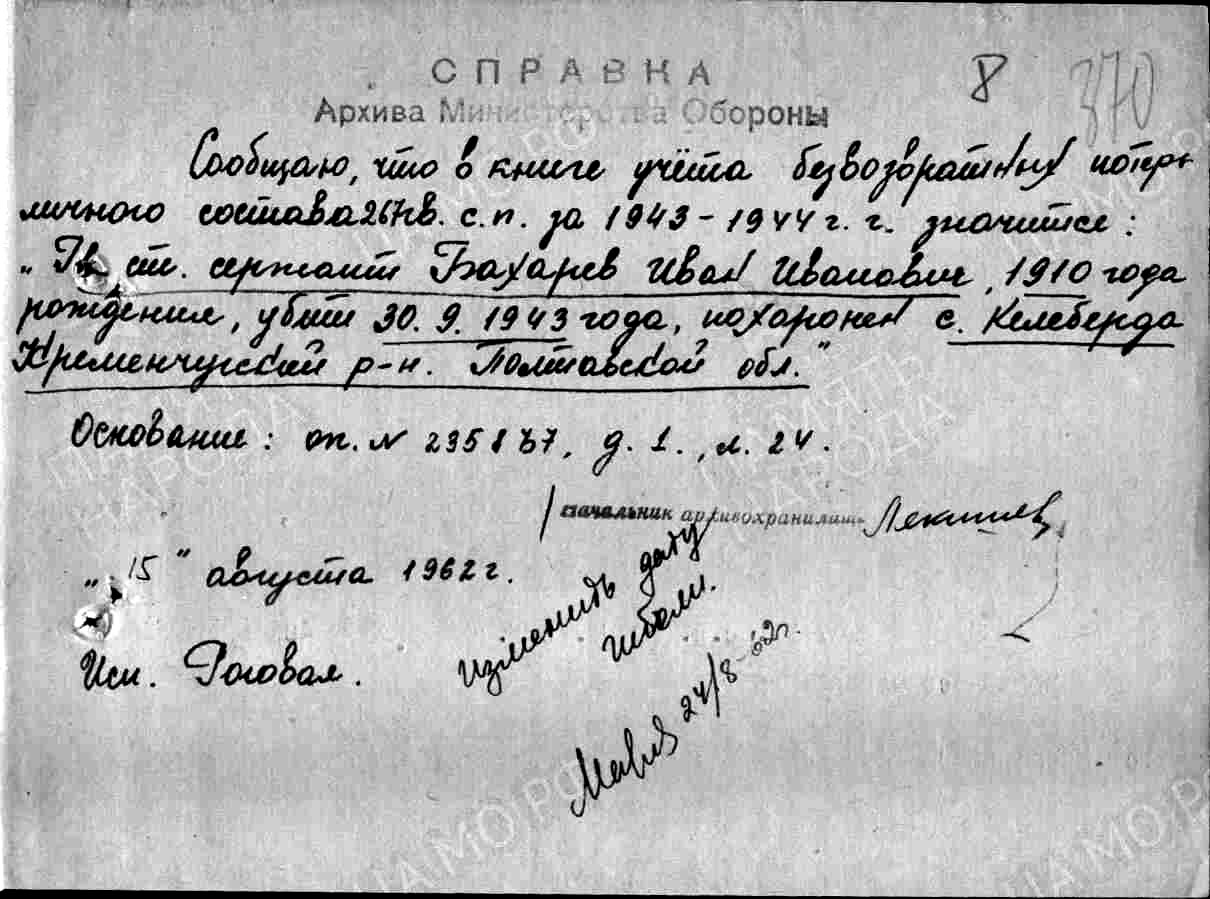 СПРАВКА
8 370
Архива Министерства Обороны
Сообщаю, что в книге учёта безвозвратных потерь
личного состава 267кв. с.п. за 1943-1944 г.г. значится:
„Гв. ст. сержант Бахарев Иван Иванович, 1910 года
рождения, убит 30.9.1943 года, похоронен с. Келеберда
Кременчугский р-н. Полтавской обл."
Основание: оп. N 235837, д. 1., л. 24.
Начальник архивохранилищ
„15" августа 1962 г.
изменить дату
гибели.
24/8-62г.
Исп. Роговая.
ПАМЯТЬ
НАРОДА
ЦАМО РФ